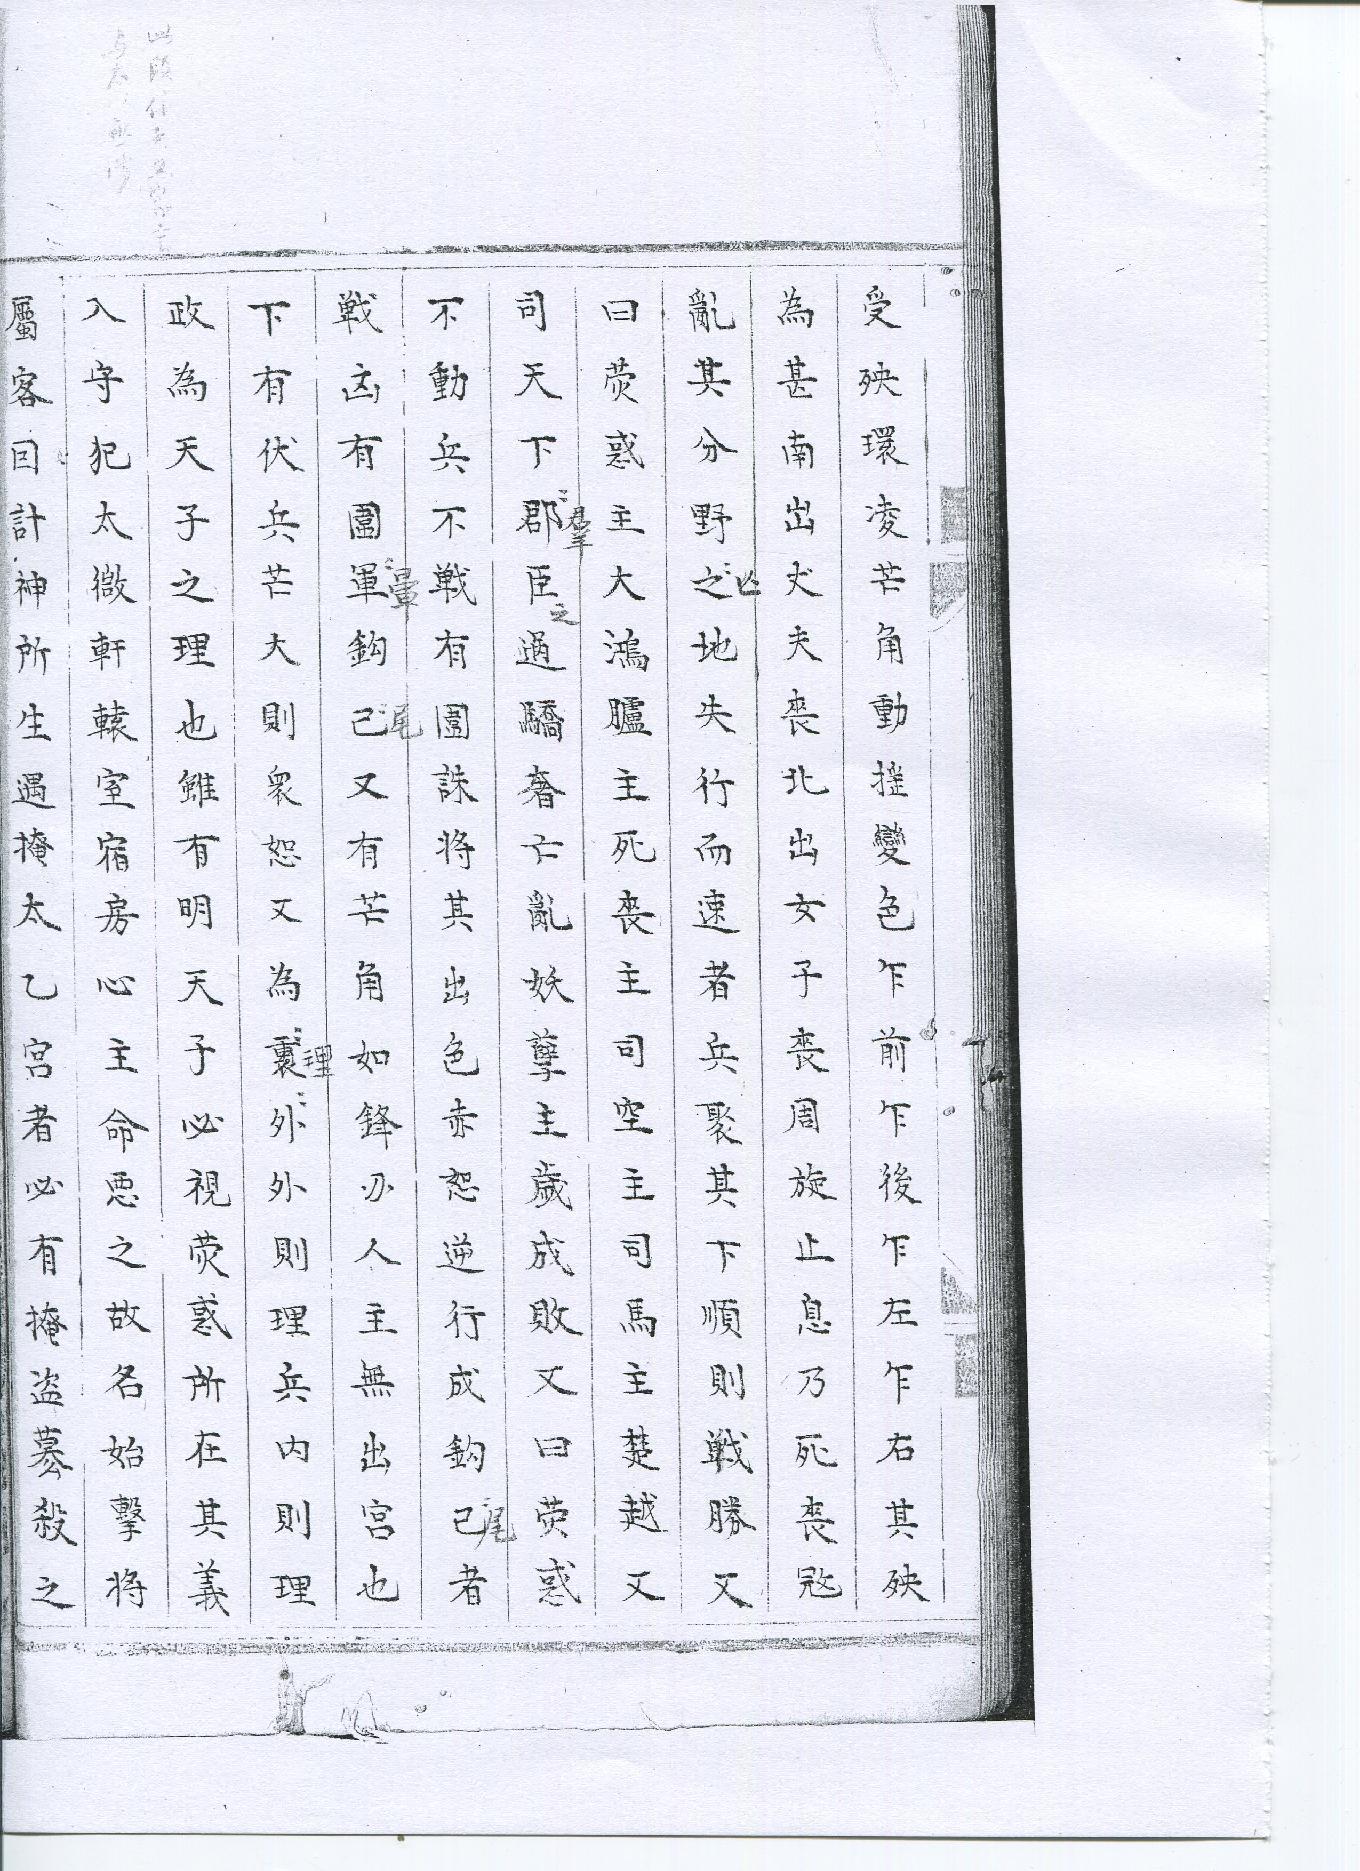 受殃環凌芒角動搖變色乍前乍後乍左乍右其殃
為甚南出丈夫喪北出女子喪周旋止息乃死喪冦
亂其分野之地失行而速者兵聚其下順則戦勝又
亡
曰荧惑主大鴻臚主死喪主司空主司馬主楚越又
群
司天下郡臣過驕奢亡亂妖孽主歲成敗又曰荧惑
之
不動兵不戦有圍誅将其出色赤怒逆行成鈎己者
尾
戦凶有圍軍鈎己又有芒角如鋒刃人主無出宮也
暈
尾
下有伏兵芒大則衆怒又為裏外外則理兵内則理
理
政為天子之理也雖有明天子必視荧惑所在其義
入守犯太微軒轅室宿房心主命惡之故名始擊将
屬客曰計神所生遇掩太乙宮者必有掩盗墓殺之